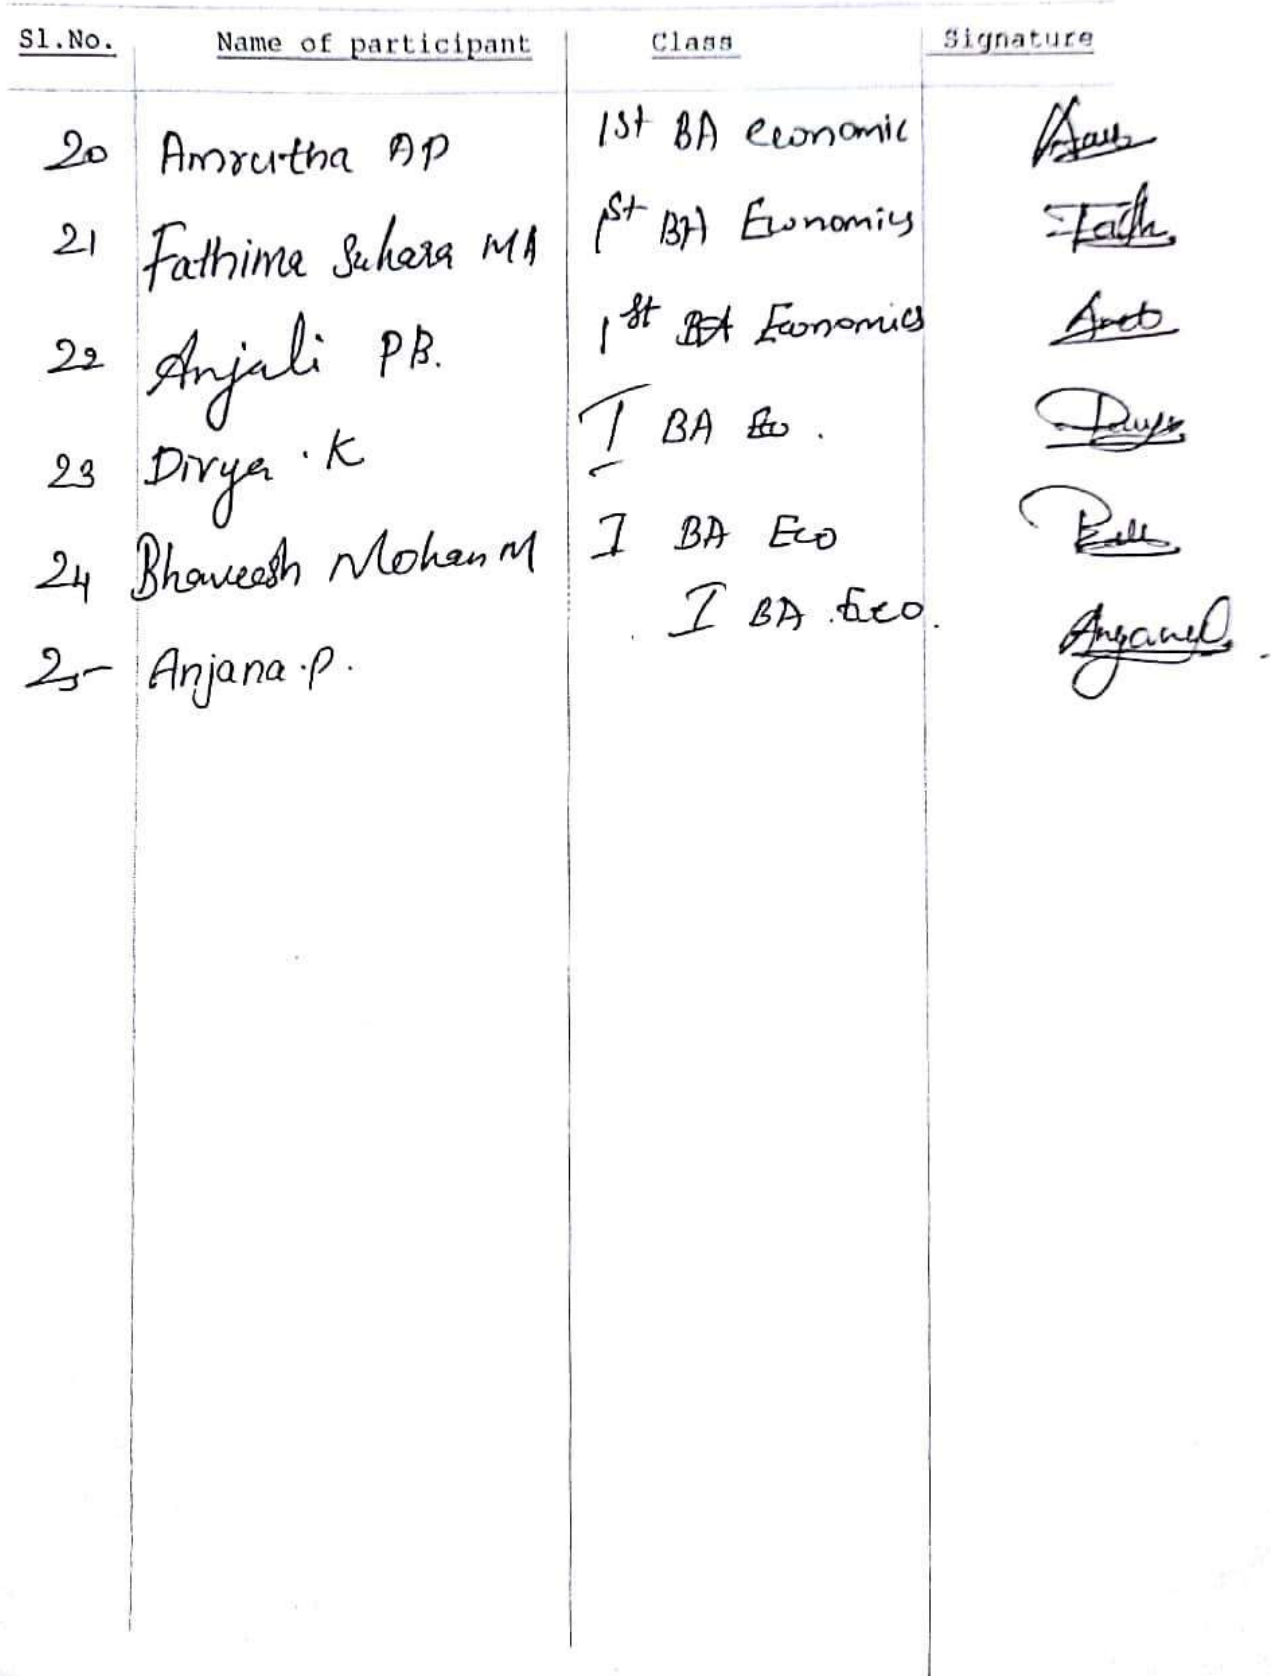 Sl.No. Name of participant Class Signature
20 Amrutha AP 1st BA economic
21 Fathima Suhara MA 1st BA Economics
22 Anjali PB. 1st BA Economics
23 Divya . K I BA Eco .
24 Bhaveesh Mohan M I BA Eco
25 Anjana .P. I BA Eco.